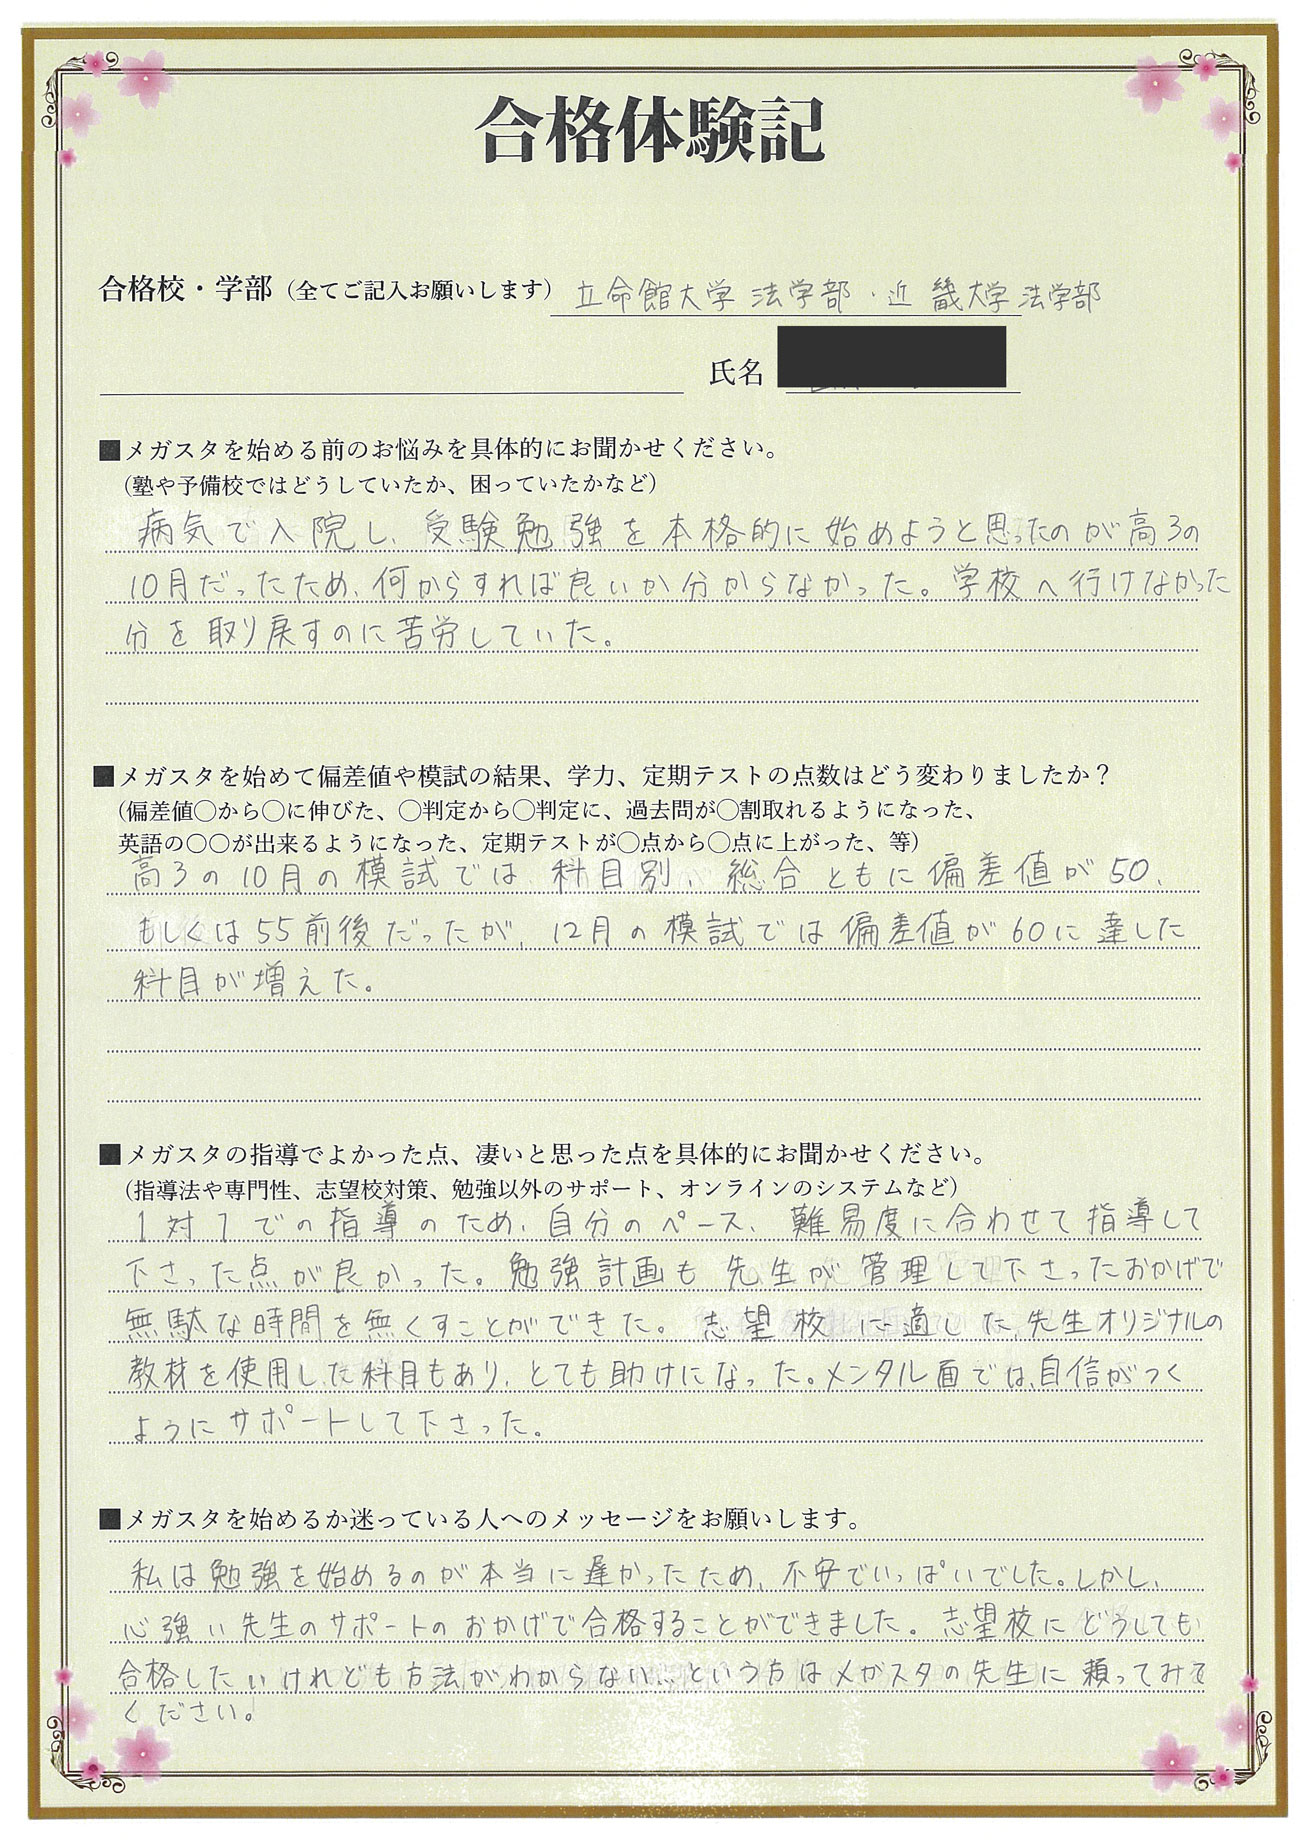 合格体験記
合格校・学部（全てご記入お願いします）立命館大学 法学部・近畿大学 法学部
氏名
■メガスタを始める前のお悩みを具体的にお聞かせください。
（塾や予備校ではどうしていたか、困っていたかなど）
病気で入院し、受験勉強を本格的に始めようと思ったのが高3の
10月だったため、何からすれば良いか分からなかった。学校へ行けなかった
分を取り戻すのに苦労していた。
■メガスタを始めて偏差値や模試の結果、学力、定期テストの点数はどう変わりましたか？
（偏差値〇から〇に伸びた、〇判定から〇判定に、過去問が〇割取れるようになった、
英語の〇〇が出来るようになった、定期テストが〇点から〇点に上がった、等）
高3の10月の模試では、科目別、総合ともに偏差値が50、
もしくは55前後だったが、12月の模試では偏差値が60に達した
科目が増えた。
■メガスタの指導でよかった点、凄いと思った点を具体的にお聞かせください。
（指導法や専門性、志望校対策、勉強以外のサポート、オンラインのシステムなど）
1対1での指導のため、自分のペース、難易度に合わせて指導して
下さった点が良かった。勉強計画も先生が管理して下さったおかげで
無駄な時間を無くすことができた。志望校に適した、先生オリジナルの
教材を使用した科目もあり、とても助けになった。メンタル面では、自信がつく
ようにサポートして下さった。
■メガスタを始めるか迷っている人へのメッセージをお願いします。
私は勉強を始めるのが本当に遅かったため、不安でいっぱいでした。しかし、
心強い先生のサポートのおかげで合格することができました。志望校にどうしても
合格したいけれども方法がわからない…という方はメガスタの先生に頼ってみて
ください！